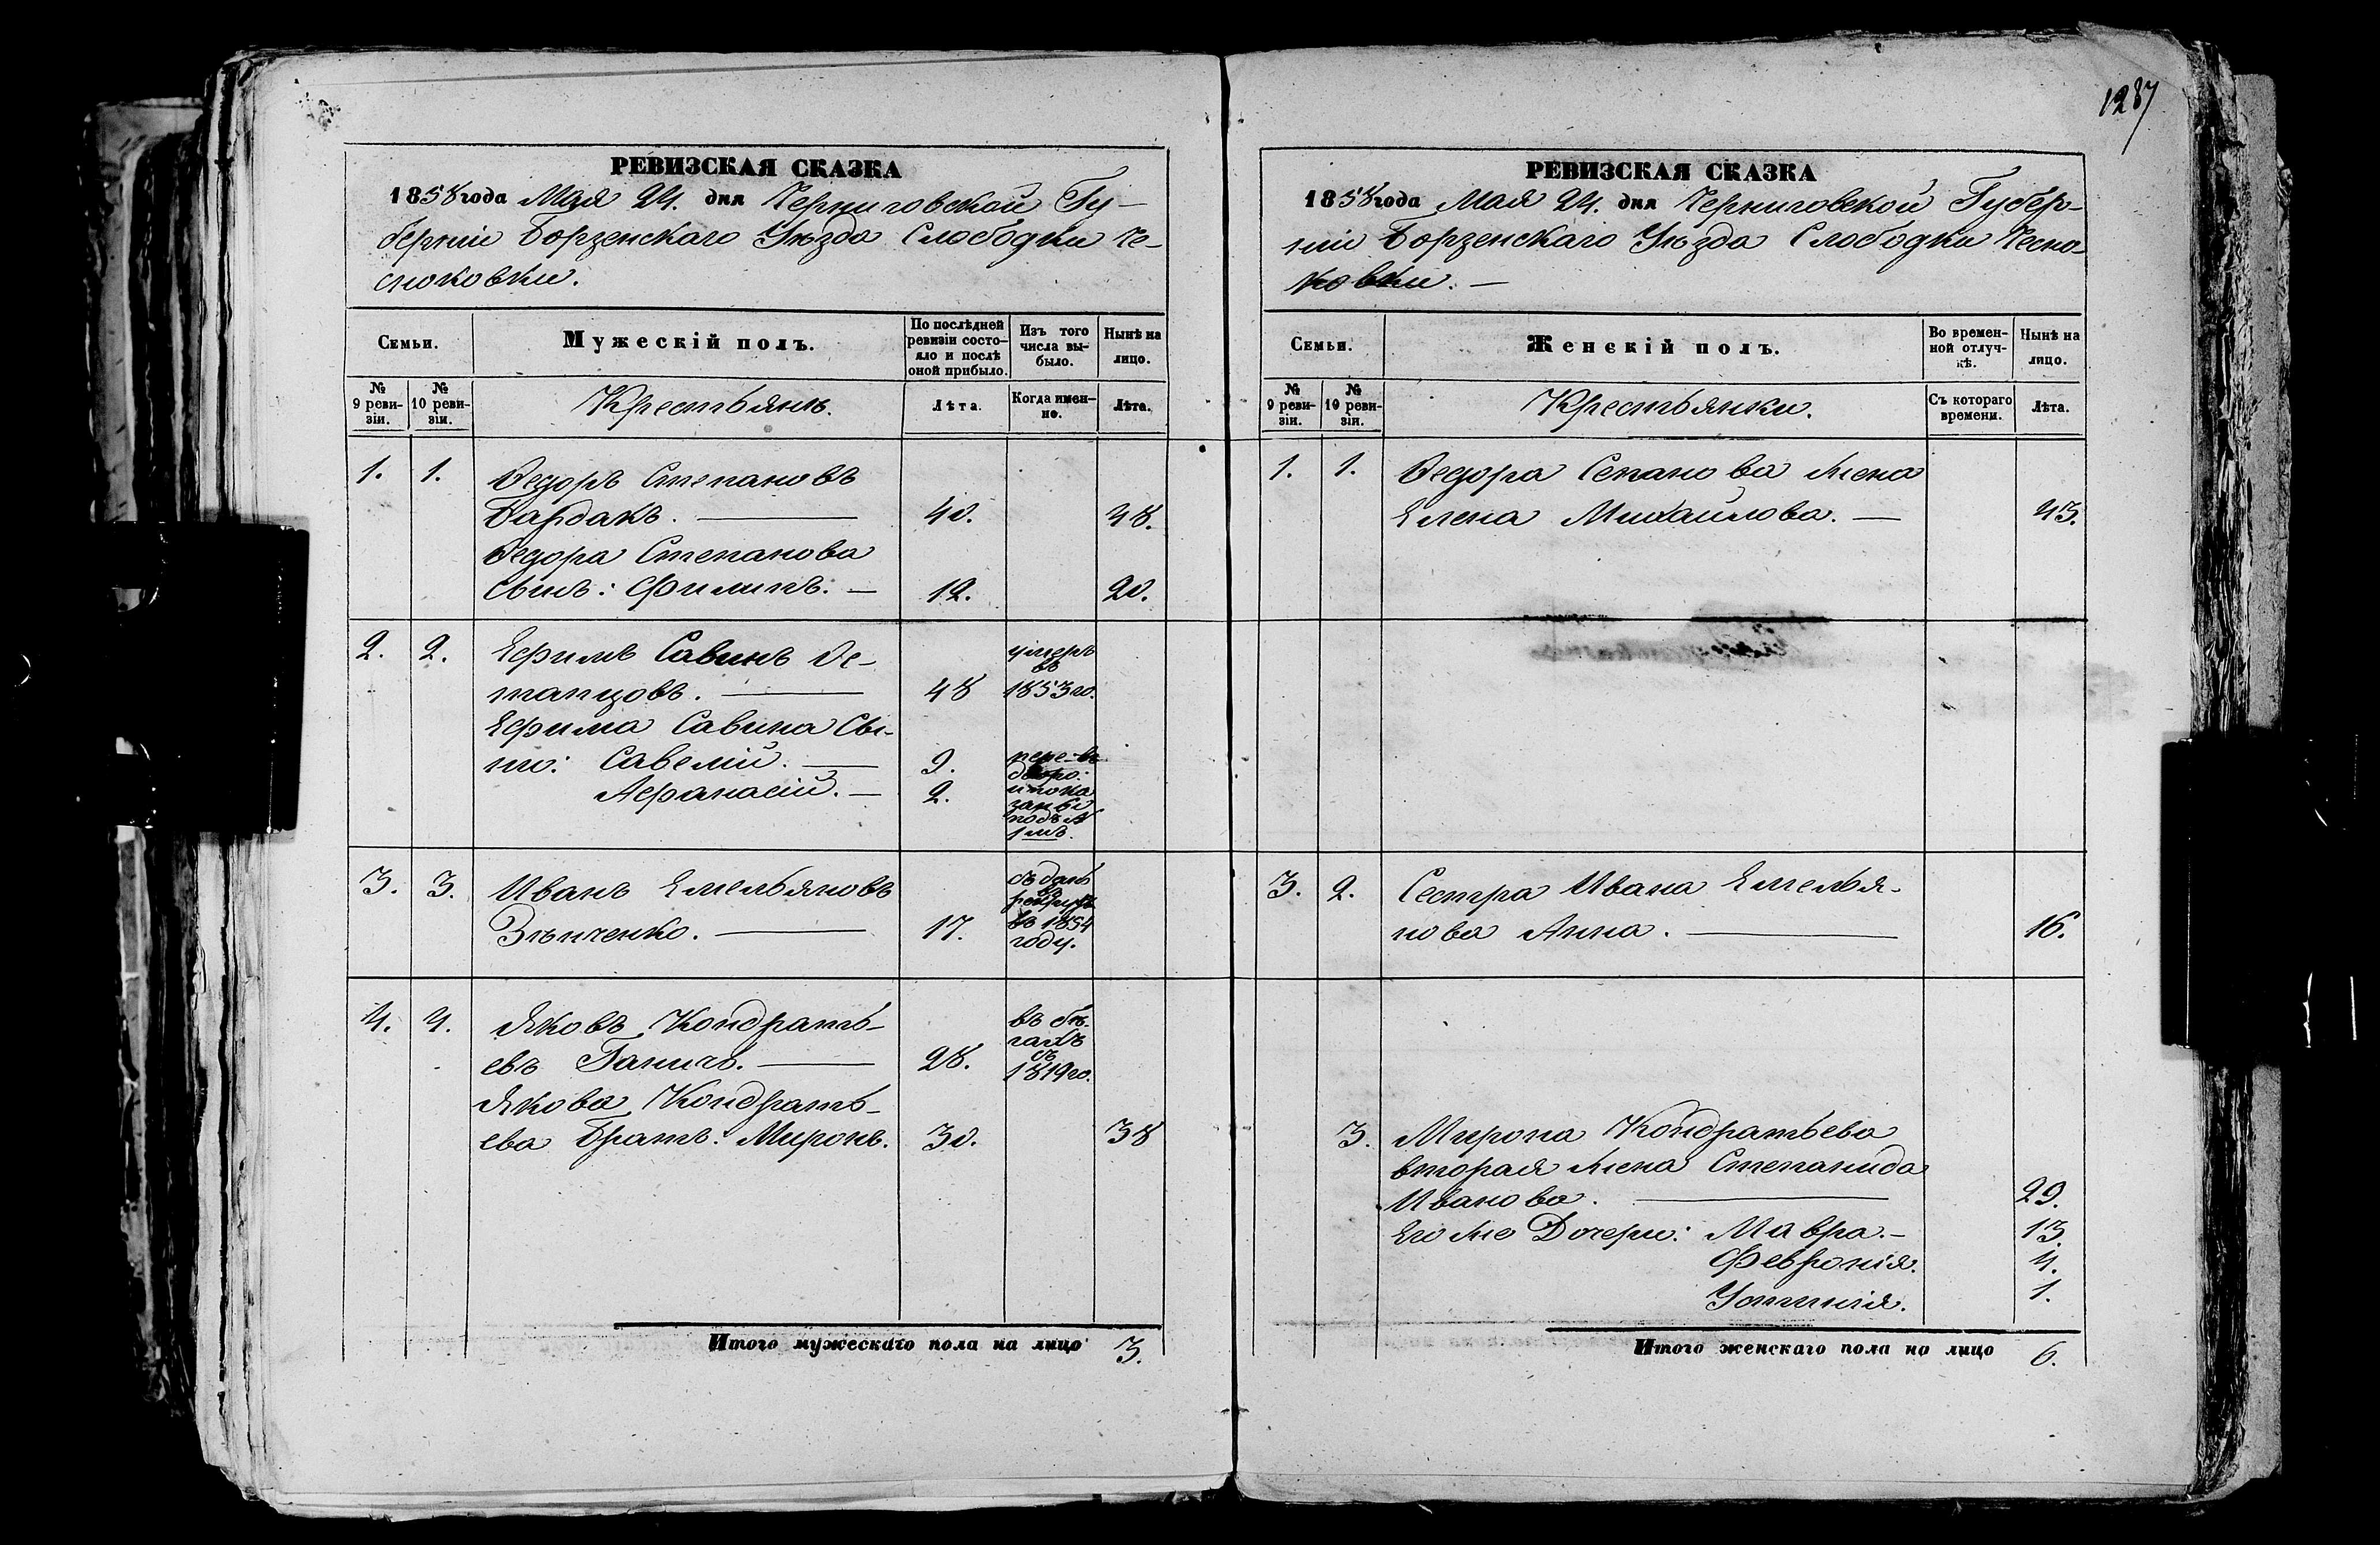 1287
РЕВИЗСКАЯ СКАЗКА
1858 года Мая 24. дня Черниговской Гу-
берніи Борзенскаго Уѣзда Слободки Че-
сноковки.
Семьи.
Мужескій полъ.
По послѣдней ревизіи состояло и послѣ оной прибыло.
Изъ того числа выбыло.
Нынѣ на лицо.
№ 9 ревизіи.
№ 10 ревизіи.
Крестьянъ.
Лѣта.
Когда именно.
Лѣта.
1. 1. Ѳедоръ Степановъ
Бардакъ. 40. 48.
Ѳедора Степанова
сынъ: Филипъ. 12. 20.
2. 2. Ефимъ Савинъ
48 умеръ въ 1853 го.
Ефима Савина Сы-
ны: Савелій. 9.
Афанасій. 2.
дворо:
и пока
заны
подъ №
1мъ.
3. 3. Иванъ Емельяновъ
Зѣнченко. 17. сданъ
въ
рекруты
въ 1854
году.
4. 4. Яковъ Кондрать-
евъ Ганичъ. 28. въ бѣ-
гахъ
съ
1819 го.
Якова Кондрать-
ева Братъ: Миронъ. 30. 38
Итого мужескаго пола на лицо 3.
РЕВИЗСКАЯ СКАЗКА
1858 года Мая 24. дня Черниговской Губер-
ніи Борзенскаго Уѣзда Слободки Чесно-
ковки.
Семьи.
Женскій полъ.
Во временной отлучкѣ.
Нынѣ на лицо.
№ 9 ревизіи.
№ 10 ревизіи.
Крестьянки.
Съ котораго времени.
Лѣта.
1. 1. Ѳедора Сепанова жена
Елена Михайлова. 43.
3. 2. Сестра Ивана Емелья-
нова Анна. 16.
3. Мирона Кондратьева
вторая жена Степанида
Иванова. 29.
Его же Дочери: Мавра. 13.
Февронія. 4.
Устинія. 1.
Итого женскаго пола на лицо 6.